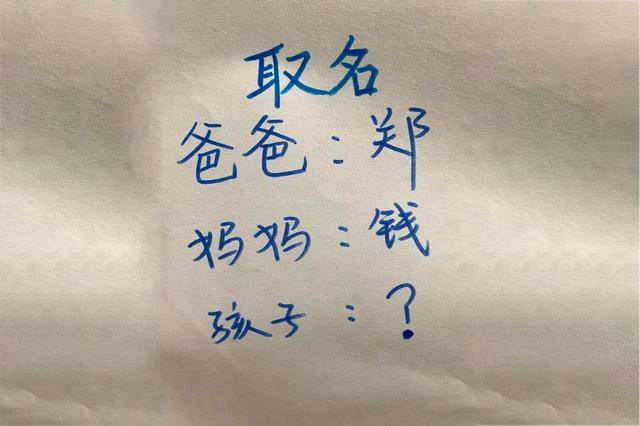 取名
爸爸:郑
妈妈:钱
孩子:?